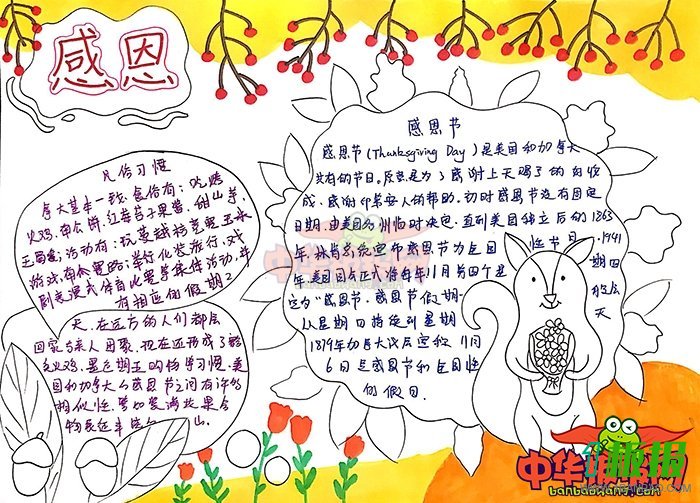 感恩
凡俗习惯
拿大基本一致,食俗有:吃烤
火鸡、南瓜饼、红莓苔子果酱、甜山芋、
玉蜀黍;活动有:玩蔓越桔竞赛、玉米
游戏、南瓜赛跑;举行化装游行、戏
剧表演或体育比赛等集体活动,并
有相应的假期2
天、在远方的人们都会
回家与亲人团聚。现在还形成了豁
免火鸡、黑色星期五购物等习惯。美
国和加拿大的感恩节之间有许多
相似性,
感恩节
感恩节(Thanksgiving Day)是美国和加拿大
共有的节日。原意是为了感谢上天赐予的好收
成、感谢印第安人的帮助。初时感恩节没有固定
日期,由美国各州临时决定,直到美国独立后的1863
年,林肯总统宣布感恩节为全国性节日。1941
年,美国国会正式将每年11月第四个星期四
定为“感恩节”。感恩节假期一般会
从星期四持续到星期天
1879年加拿大议会宣称11月
6日是感恩节和全国性
的假日。
中华班报网
banbaowang.com